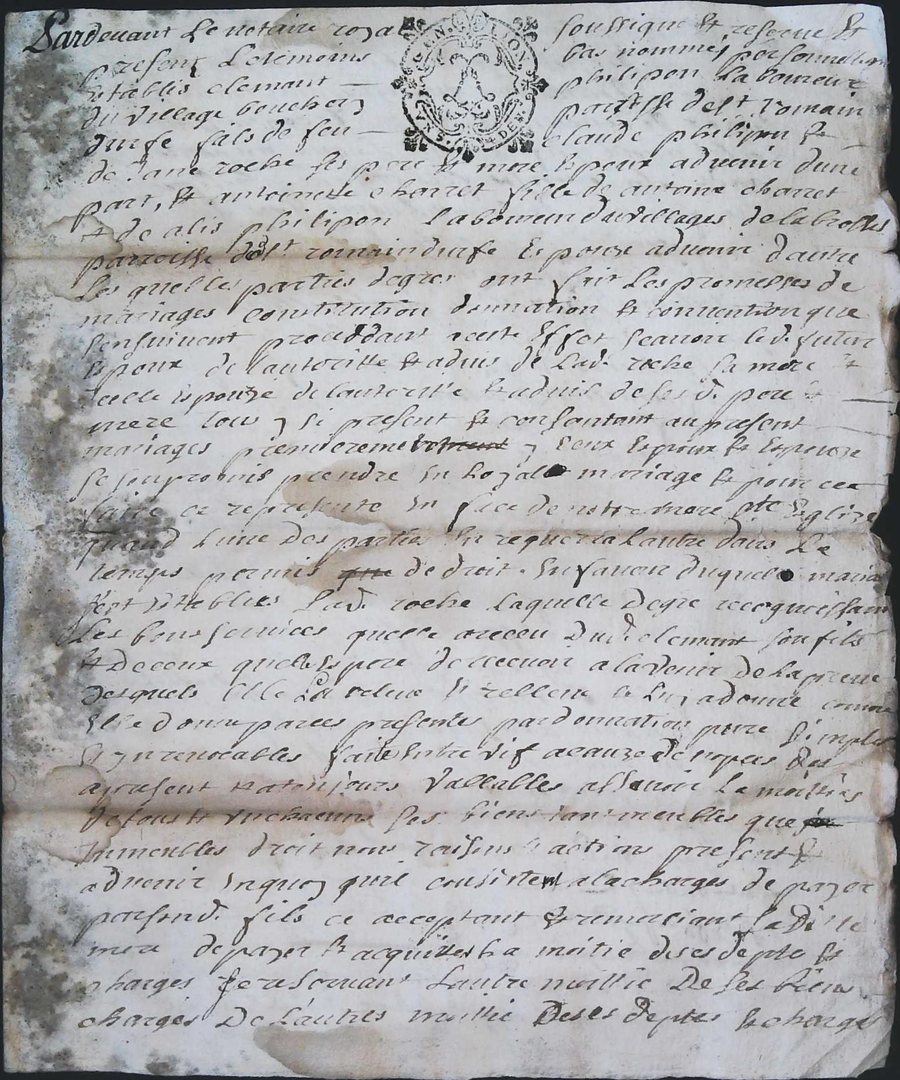 GEN. D. LION.
Pardevant Le notaire roya soussigne & reserve Et
present Letemoins bas nommés personnellem
etablis clemant philipon Laboureur
du village bouchory parisse de st. romain
durfe fils de feu claude philipon &
de Jane roche ses pere & mere Espoux advenir dune
part, & antoinette charret fille de antoine charret
& de alis philipon Laboureur du villages de la brosses
parroisse de st romain durfe Espouze advenir dautre
Les quelles parties degres ont fait Les promesses de
mariages constitution donnation & convention que
sensuivent proceddant acest Effet scavoir led. futur
Espoux de lautoritte & advis de Lad. roche sa mere &
celle Espouze de lautoritte & advis de sesd. pere &
mere tous y si present & consantant au present
mariages premierement y ceux Espoux & Espouze
se son promis prendre En Loyal mariage & pour cet
faire ce represente En face de notre mere ste Eglize
quand Lune des partie En requerra Lautre dans Le
temps permis de droit. En faveur duquel maria
sest Etablies Lad. roche Laquelle degre recognoissant
Les bons services quelle a receu dud. clemant son fils
& de ceux quelle Espere de recevoir a ladvenir de La preuve
desquels Elle La releve & rellene & Luy a donne comme
Elle donne par ces presentes par donnation pure simples
& Inrevocables faite Entre vif a cauze de nopces des
apresent & atousjours vallables assavoir La moitties
de tous & un chacuns ses biens tant meubles que
Immeubles droit noms raisons & actions present &
advenir En quoy quil consistent a la charges de payer
par sond. fils ce acceptant & remerciant sa ditte
mere de payer & acquitter La moitie de ses depte &
charges se reservant Lautre moittie De ses biens
charges De Lautres moittie De ses deptes & charges